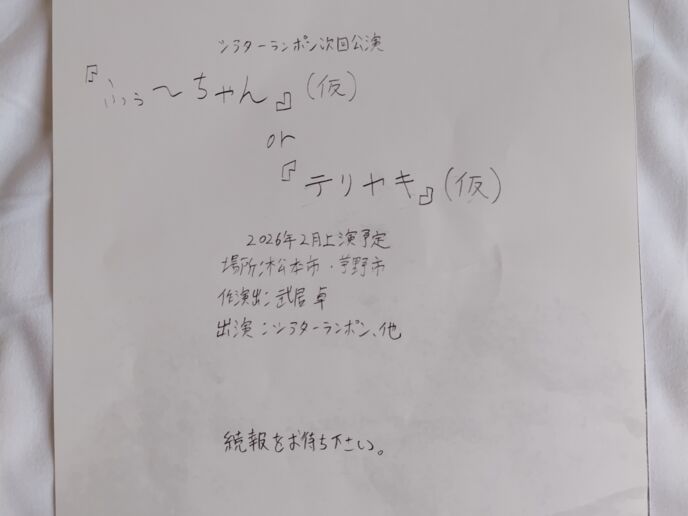 シアターランポン次回公演
『ふぅ〜ちゃん』(仮)
or
『テリヤキ』(仮)
2026年2月上演予定
場所:松本市・茅野市
作演出:武居卓
出演:シアターランポン、他
続報をお待ち下さい。